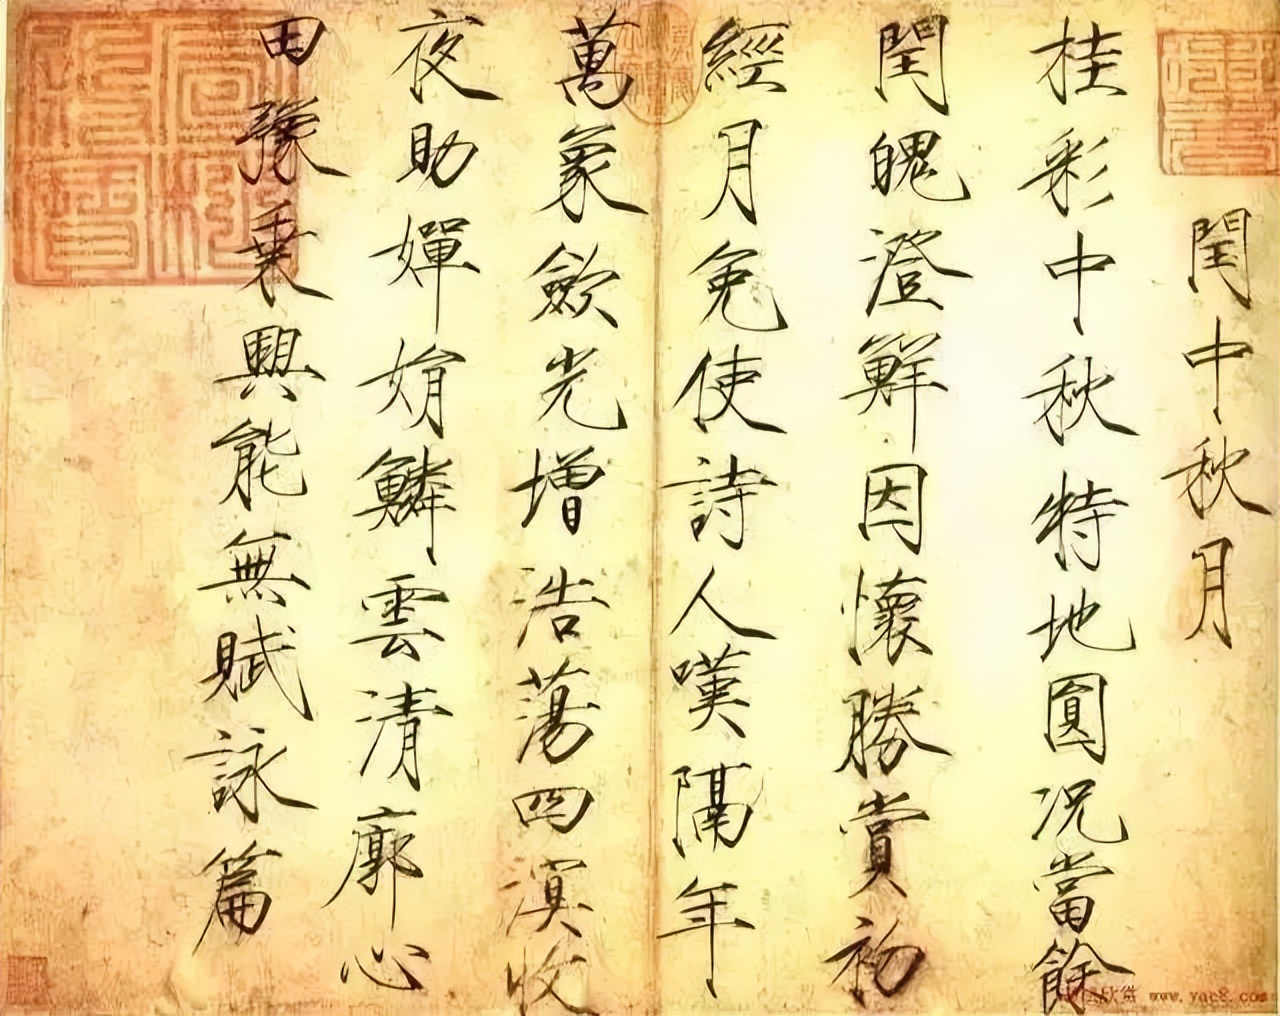 閏中秋月
桂彩中秋特地圓况當餘
閏魄澄鮮因懷勝賞初
經月免使詩人嘆隔年
萬象斂光增浩蕩四溟收
夜助嬋娟鱗雲清廓心
田豫乘興能無賦詠篇
www.yac8.com